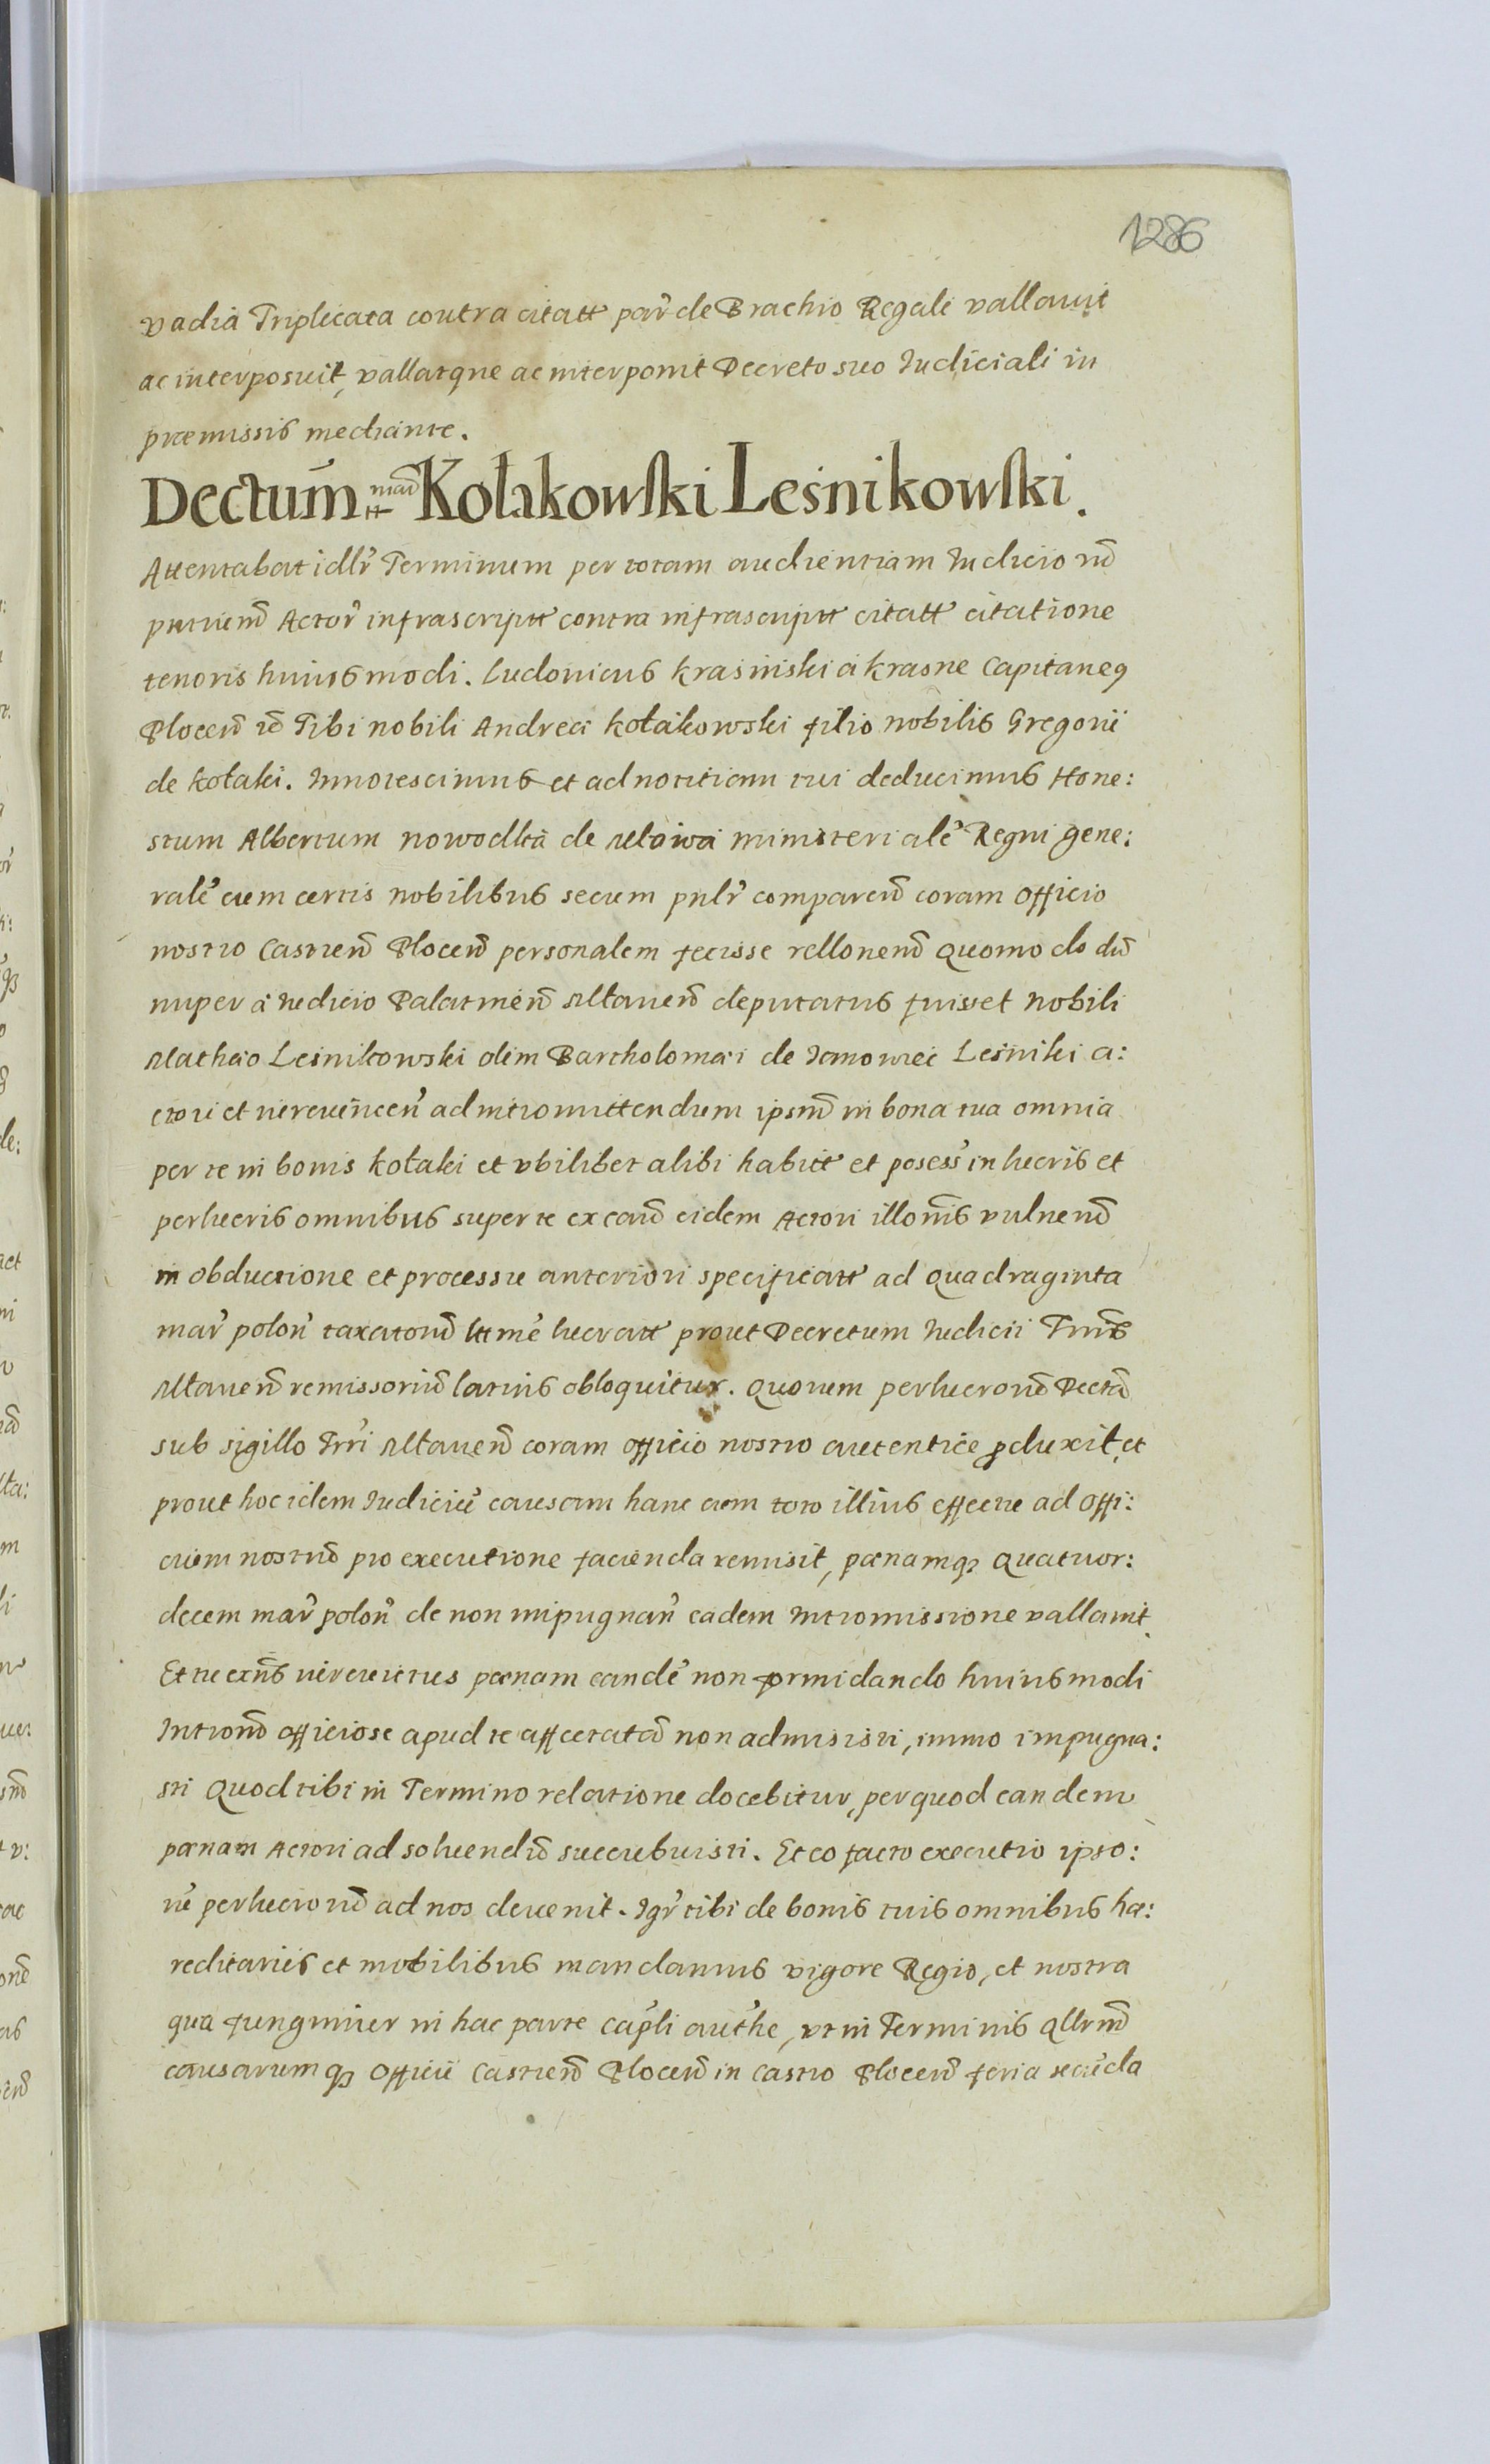 1286
vadia Triplicata contra citatt par̃ de Brachio Regali vallavit
ac interposuit, vallatque ac interponit Decreto suo Iudiciali in
præmissis mediante.
Dectum̃ Kołakowski Leśnikowski.
Attentabat idlr̃ Terminum per totam audientiam Iudicio
Actor̃ infrascriptt contra infrascriptt citatt citatione
tenoris huiusmodi. Ludovicus Krasiński á Krasne Capitaneꝯ
Plocen̄ Tibi nobili Andreæ Kołakowski filio nobilis Gregorii
de Kołaki. Innotescimus et ad notitiam tui deducimus Hone:
stum Albertum nowodlta de Mława ministerialẽ Regni gene:
ralẽ cum certis nobilibus secum pnlr̃ comparen̄ coram Officio
nostro Castren̄ Plocen̄ personalem fecisse rellonem̄ Quomodo dū
nuper á Iudicio Palatinen̄ Mlaven̄ deputatus fuisset Nobili
Mathæo Leśnikowski olim Bartholomæi de Janowiec Leśniki a:
ctori et ad intromittendum ipsm̄ in bona tua omnia
per te in bonis Kołaki et vbilibet alibi habitt et posess̃ in lucris et
perlucris omnibus super te ex cau̅ eidem Actori illomīs vulnerū
in obductione et processu anteriori specificatt ad Quadraginta
mar̃ polon̄ taxatorū lttmẽ lucratt prout Decretum Iudicii Trrīs
Mlaven̄ remissoriū latius obloquitur. Quorum perlucrorū Dectā
sub sigillo Trrī Mlaven̄ coram officio nostro autentice ꝓduxit, et
prout hoc idem Iudiciũ causam hanc cum toto illius effectu ad Offi:
cium nostrū pro executione facienda remisit, pænamqꝫ Quatuor:
decem mar̃ polon̄ de non impugnan̄ eadem Intromissione vallavit.
Et tu exn̄s pænam eandẽ non formidando huiusmodi
Intronē officiose apud te affectatā non admisisti, immo impugna:
sti Quod tibi in Termino relatione docebitur, per quod eandem
pænam Actori ad solvendū succubuisti. Et eo facto executio ipso:
rũ perlucrorū ad nos devenit. Igr̃ tibi de bonis tuis omnibus hæ:
reditariis et mobilibus mandamus vigore Regio, et nostra
qua fungimur in hac parte cap̃li auth̃e, vt in Terminis Qllrm̄
causarumqꝫ Officii Castren̄ Plocen̄ in Castro Plocen̄ feria secũda